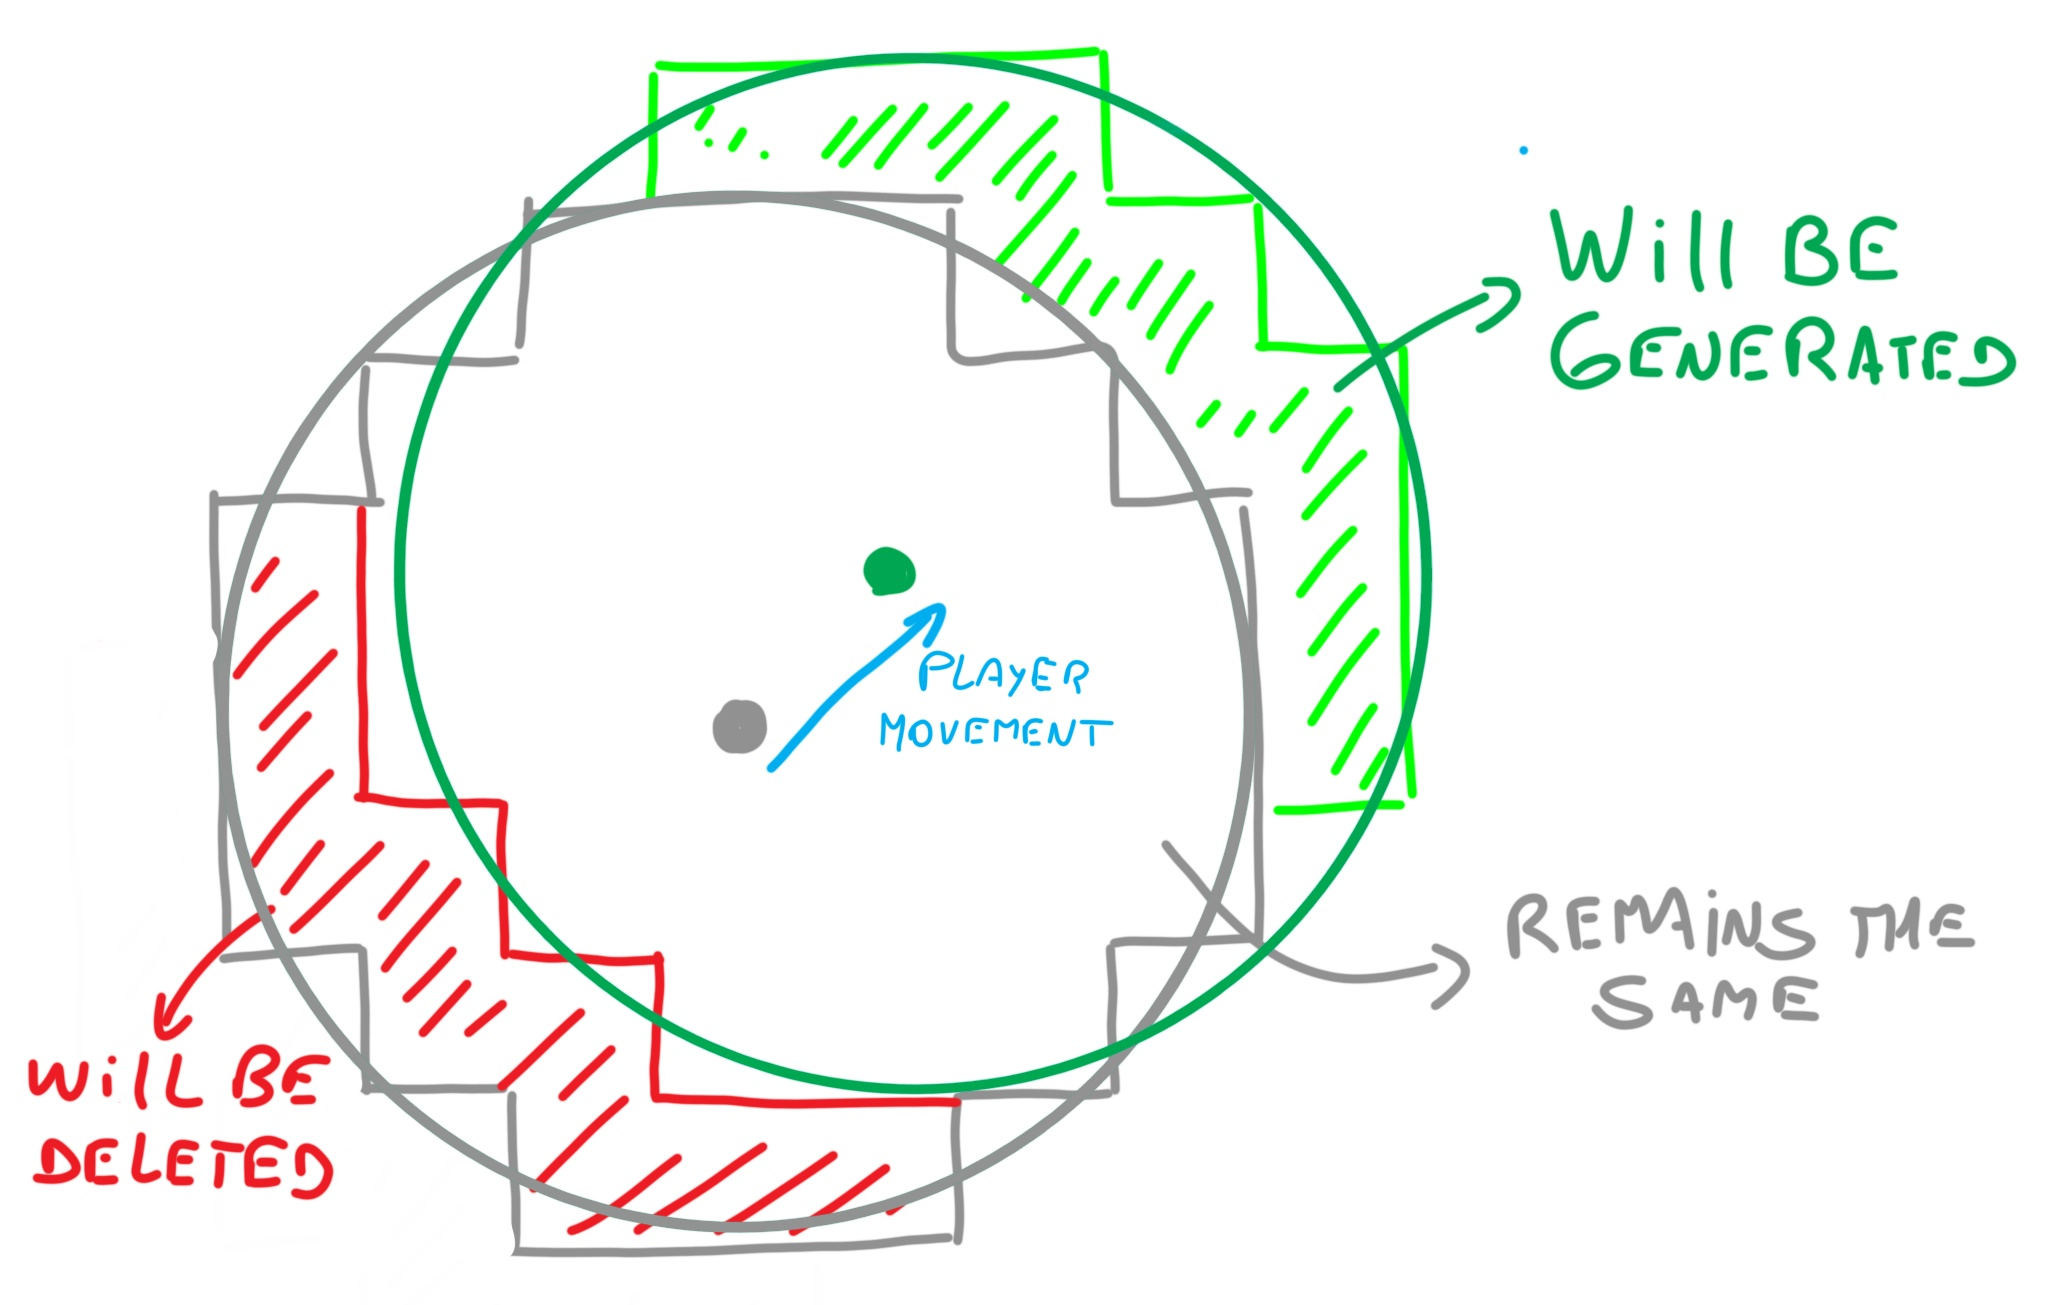 WiLL BE
GENERATED
PLAYER
MOVEMENT
REMAiNS THE
SAME
WiLL BE
DELETED